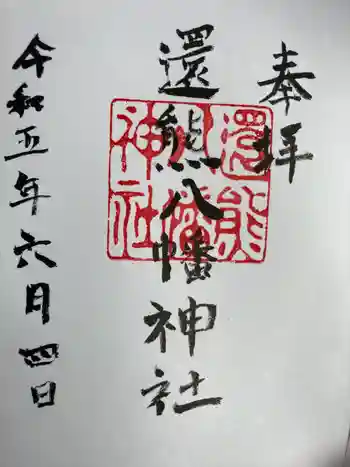 奉拝
還熊八幡神社
令和五年六月四日
還熊
八幡
神社